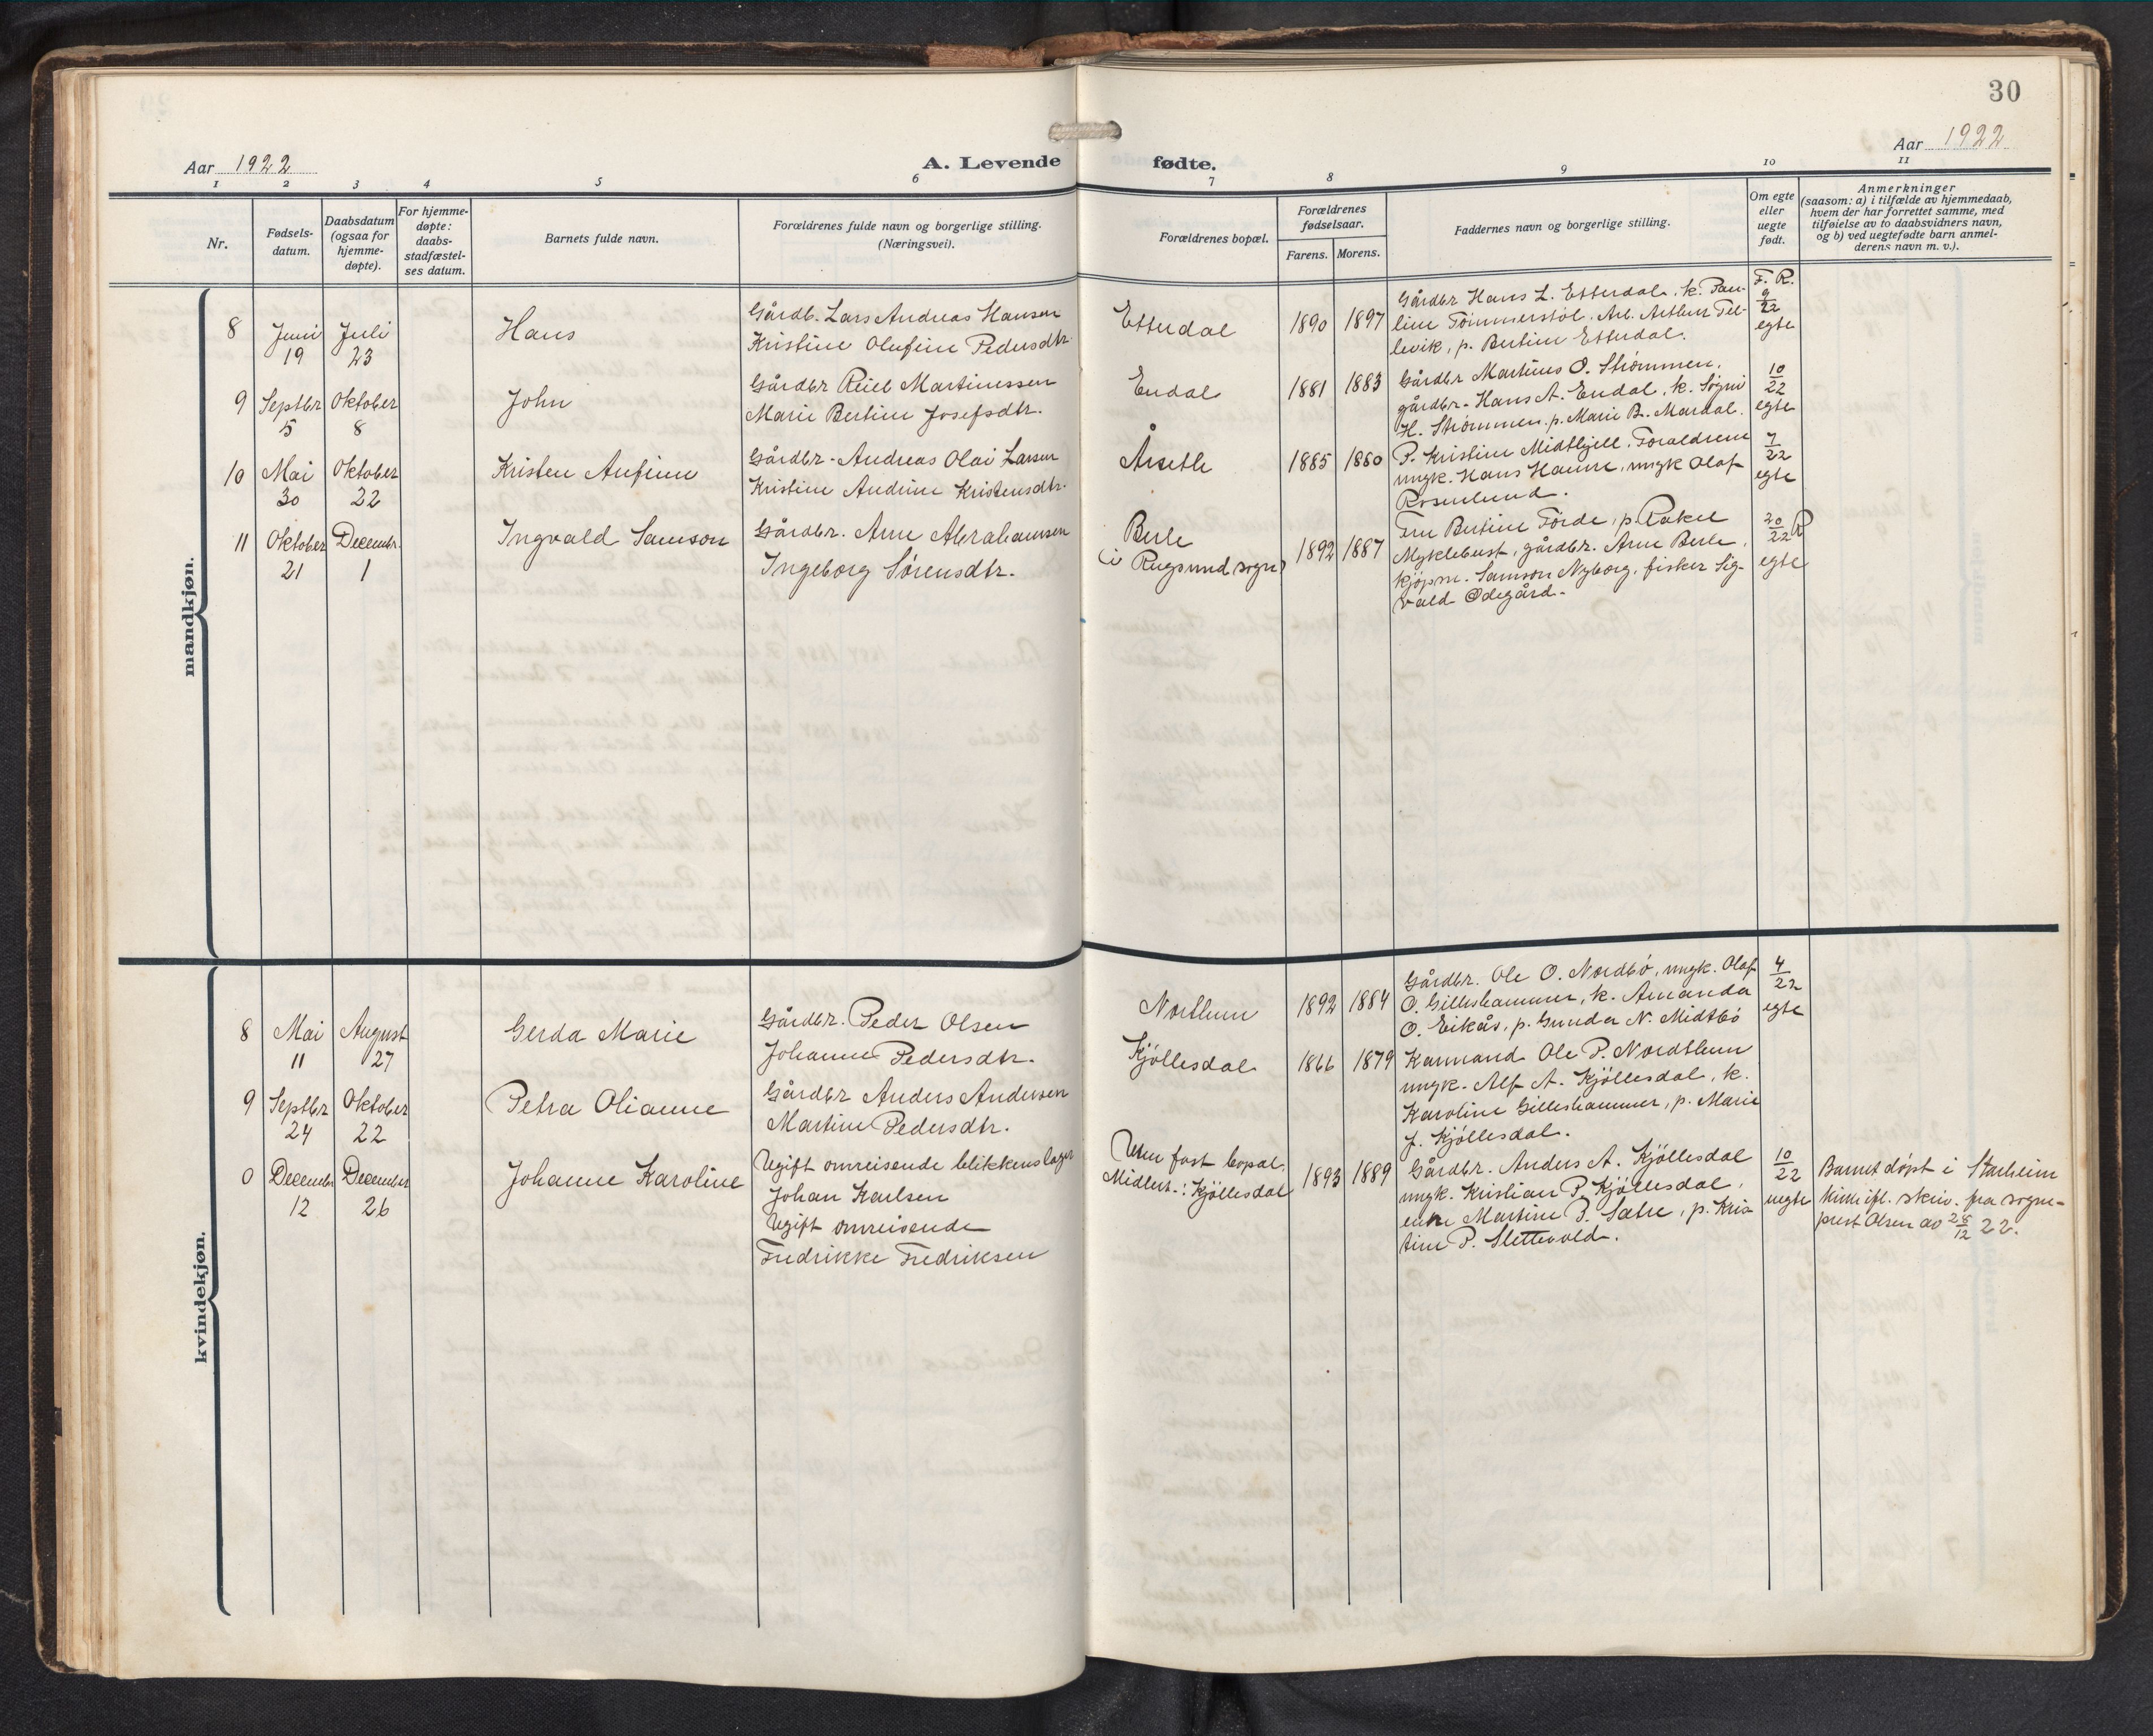 30
Aar 1922
A. Levende
fødte.
Aar 1922
1 2 3 4 5 6 7 8 9 10 11
Nr.
Fødsels-
datum.
Daabsdatum
(ogsaa for
hjemme-
døpte).
For hjemme-
døpte:
daabs-
stadfæstel-
ses datum.
Barnets fulde navn.
Forældrenes fulde navn og borgerlige stilling.
(Næringsvei).
Forældrenes bopæl.
Forældrenes
fødselsaar.
Farens. Morens.
Faddernes navn og borgerlige stilling.
Om egte
eller
uegte
født.
Anmerkninger
(saasom: a) i tilfælde av hjemmedaab,
hvem der har forrettet samme, med
tilføielse av to daabsvidners navn,
og b) ved uegtefødte barn anmel-
derens navn m. v.).
mandkjøn.
8
Juni
19
Juli
23
Hans
Gårdb. Lars Andreas Hansen
Kristine Olufine Pedersdtr.
Etterdal
1890 1897
Gårdbr Hans L. Etterdal, k. Pau-
line Tømmerstøl. Arb. Arthur Tel-
levik, p. Bertine Etterdal.
F. R.
9/22
egte
9
Septbr
5
Oktober
8
John
Gårdbr Reiel Martinussen
Marie Bertine Josefsdtr.
Endal
1881 1883
Gårdbr Martinus O. Strømmen,
gårdbr. Hans A. Endal, k. Søgni
H. Strømmen, p. Marie B. Mardal.
10/22
egte
10
Mai
30
Oktober
22
Kristen Anfinn
Gårdbr. Andreas Olai Larsen
Kristine Andrine Kristensdtr.
Årsetle
1885 1880
P. Kristine Midthjell. Forældrene
ungk. Hans Hamre, ungk Olaf
Rosenlund.
7/22
egte
11
Oktober
21
Decembr.
1
Ingvald Samson
Gårdbr. Arne Abrahamsen
Ingeborg Sørensdtr.
Berle
(i Rugsund sogn)
1892 1887
Fru Bertine Förde, p. Rakel
Myklebust, gårdbr. Arne Berle,
kjøpm. Samson Nyborg, fisker Sig-
vald Ødegård.
20/22 R
egte
kvindekjøn.
8
Mai
11
August
27
Gerda Marie
Gårdbr. Peder Olsen
Johanne Pedersdtr.
Northun
1892 1884
Gårdbr. Ole O. Nordbö, ungk. Olaf
O. Gilleshammer, k. Amanda
O. Eikås, p. Gunda N. Midtbö
4/22
egte
9
Septbr
24
Oktober
22
Petra Olianne
Gårdbr Anders Andersen
Martine Pedersdtr.
Kjöllesdal
1866 1879
Kårmand Ole P. Nordthun
ungk. Alf A. Kjöllesdal, k.
Karoline Gilleshammer, p. Marie
J. Kjöllesdal.
0
December
12
December
26
Johanne Karoline
Ugift omreisende blikkenslager
Johan Karlsen
Ugift omreisende
Fredrikke Fredriksen
Uten fast bopæl.
Midlert.: Kjöllesdal
1893 1889
Gårdbr. Anders A. Kjöllesdal
ungk. Kristian P. Kjöllesdal,
enke Martine P. Sætre, p. Kris
tine P. Slettevold.
10/22
uegte
Barnet døpt i Starheim
kirke ifl. skriv. fra sogne-
prest Olsen av 28/12 22.